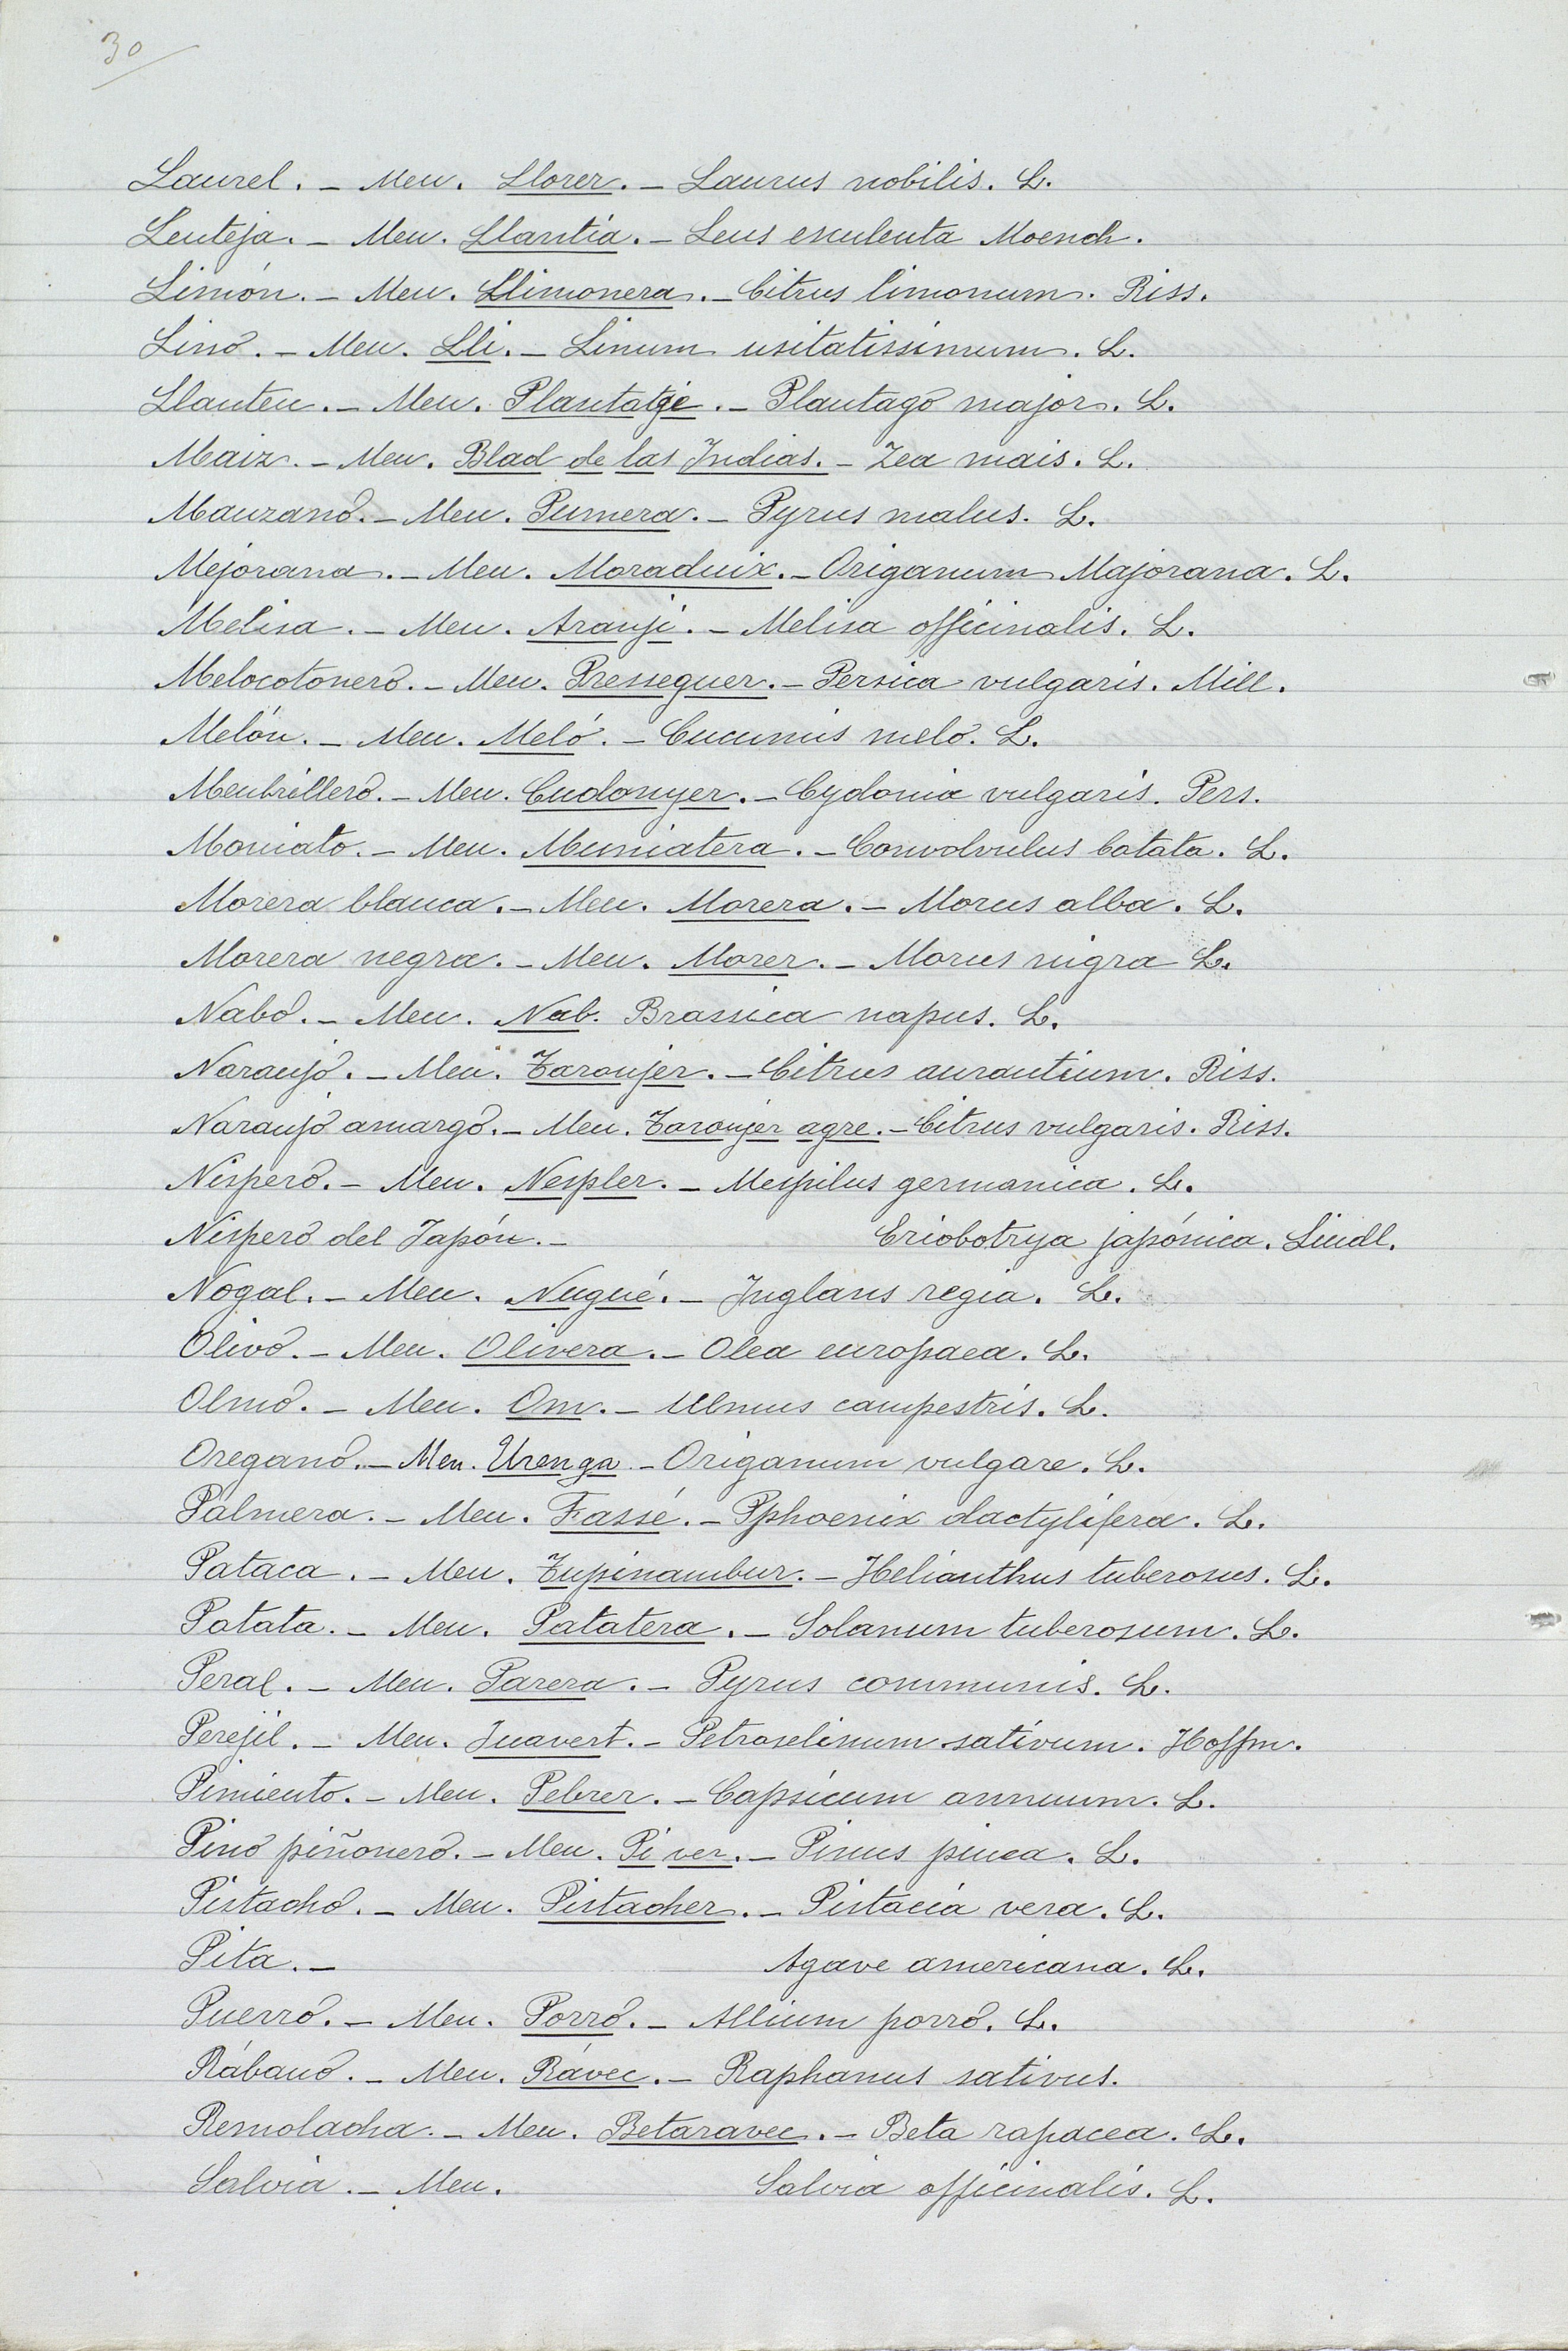 30
Laurel. - Men. Llorer. - Laurus nobilis. L.
Lenteja. - Men. Llantía. - Lens esculenta Moench.
Limón. - Men. Llimonera. - Citrus limonum. Riss.
Lino. - Men. Lli. - Linum usitatissimum. L.
Llanten. - Men. Plantatje. - Plantago major. L.
Maiz. - Men. Blad de las Indias. - Zea mais. L.
Manzano. - Men. Pumera. - Pyrus malus. L.
Mejorana. - Men. Moraduix. - Origanum Majorana. L.
Melisa. - Men. Aranji. - Melisa officinalis. L.
Melocotonero. - Men. Presseguer. - Persica vulgaris. Mill.
Melón. - Men. Meló. - Cucumis melo. L.
Membrillero. - Men. Cudonyer. - Cydonia vulgaris. Pers.
Moniato. - Men. Muniatera. - Convolvulus batata. L.
Morera blanca. - Men. Morera. - Morus alba. L.
Morera negra. - Men. Morer. - Morus nigra L.
Nabo. - Men. Nab. Brassica napus. L.
Naranjo. - Men. Taronjer. - Citrus aurantium. Riss.
Naranjo amargo. - Men. Taronjer agre. - Citrus vulgaris. Riss.
Nispero. - Men. Nespler. - Mespilus germanica. L.
Nispero del Japón. - Eriobotrya japónica. Lindl.
Nogal. - Men. Nugué. - Juglans regia. L.
Olivo. - Men. Olivera. - Olea europaea. L.
Olmo. - Men. Om. - Ulmus campestris. L.
Oregano. - Men. Urenga - Origanum vulgare. L.
Palmera. - Men. Fassé. - Pphoenix dactylifera. L.
Pataca. - Men. Tupinambur. - Helianthus tuberosus. L.
Patata. - Men. Patatera. - Solanum tuberosum. L.
Peral. - Men. Parera. - Pyrus communis. L.
Perejil. - Men. Juavert. - Petroselinum sativum. Hoffm.
Pimiento. - Men. Pebrer. - Capsicum annuum. L.
Pino piñonero. - Men. Pi ver. - Pinus pinea. L.
Pistacho. - Men. Pistacher. - Pistacia vera. L.
Pita. - Agave americana. L.
Puerro. - Men. Porro. - Allium porro. L.
Rábano. - Men. Rávec. - Raphanus sativus.
Remolacha. - Men. Betaravec. - Beta rapacea. L.
Salvia. - Men. Salvia officinalis. L.